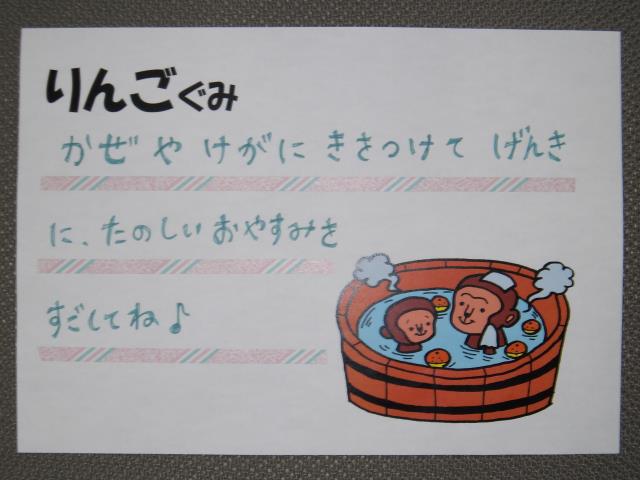 りんごぐみ
かぜ や けがに ききつけて げんき
に、たのしい おやすみを
すごしてね♪